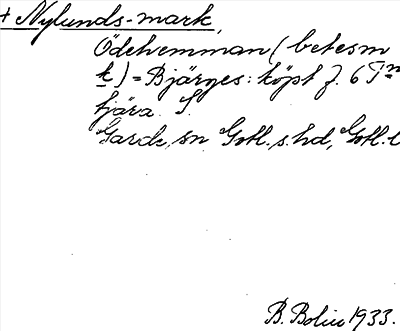 + Nylunds-mark,
Ödehemman (betesm
k) = Bjärges: köpt f. 6 Tn
tjära. S.
Garde sn Gotl. s. hd, Gotl. l
B. Bolin 1933.